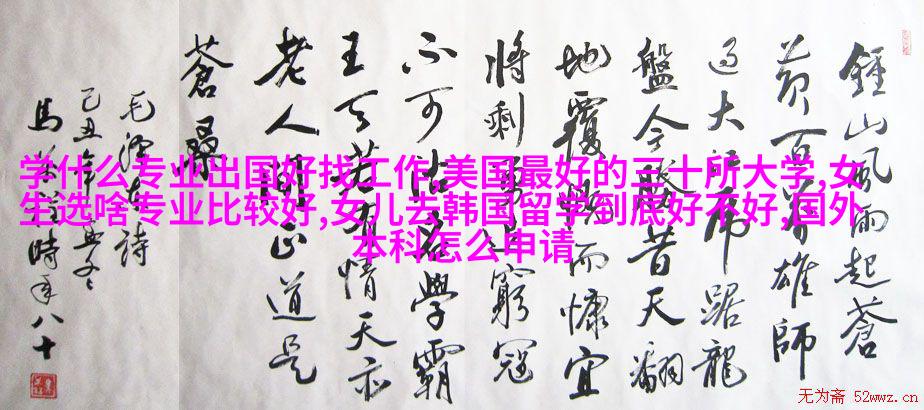 学什么专业出国好找工作,美国最好的三十所大学,女
生选啥专业比较好,女儿去韩国留学到底好不好,国外
本科怎么申请
鍾山風雨起蒼
黄百万雄師
过大江虎踞龍
盤今勝昔天翻
地覆慨而慷宜
将剩勇追窮寇
不可沽名學霸
王天若有情天亦
老人間正道是
蒼桑
毛澤東詩
己丑年
馬 時年八十
无为斋 52wwz.cn